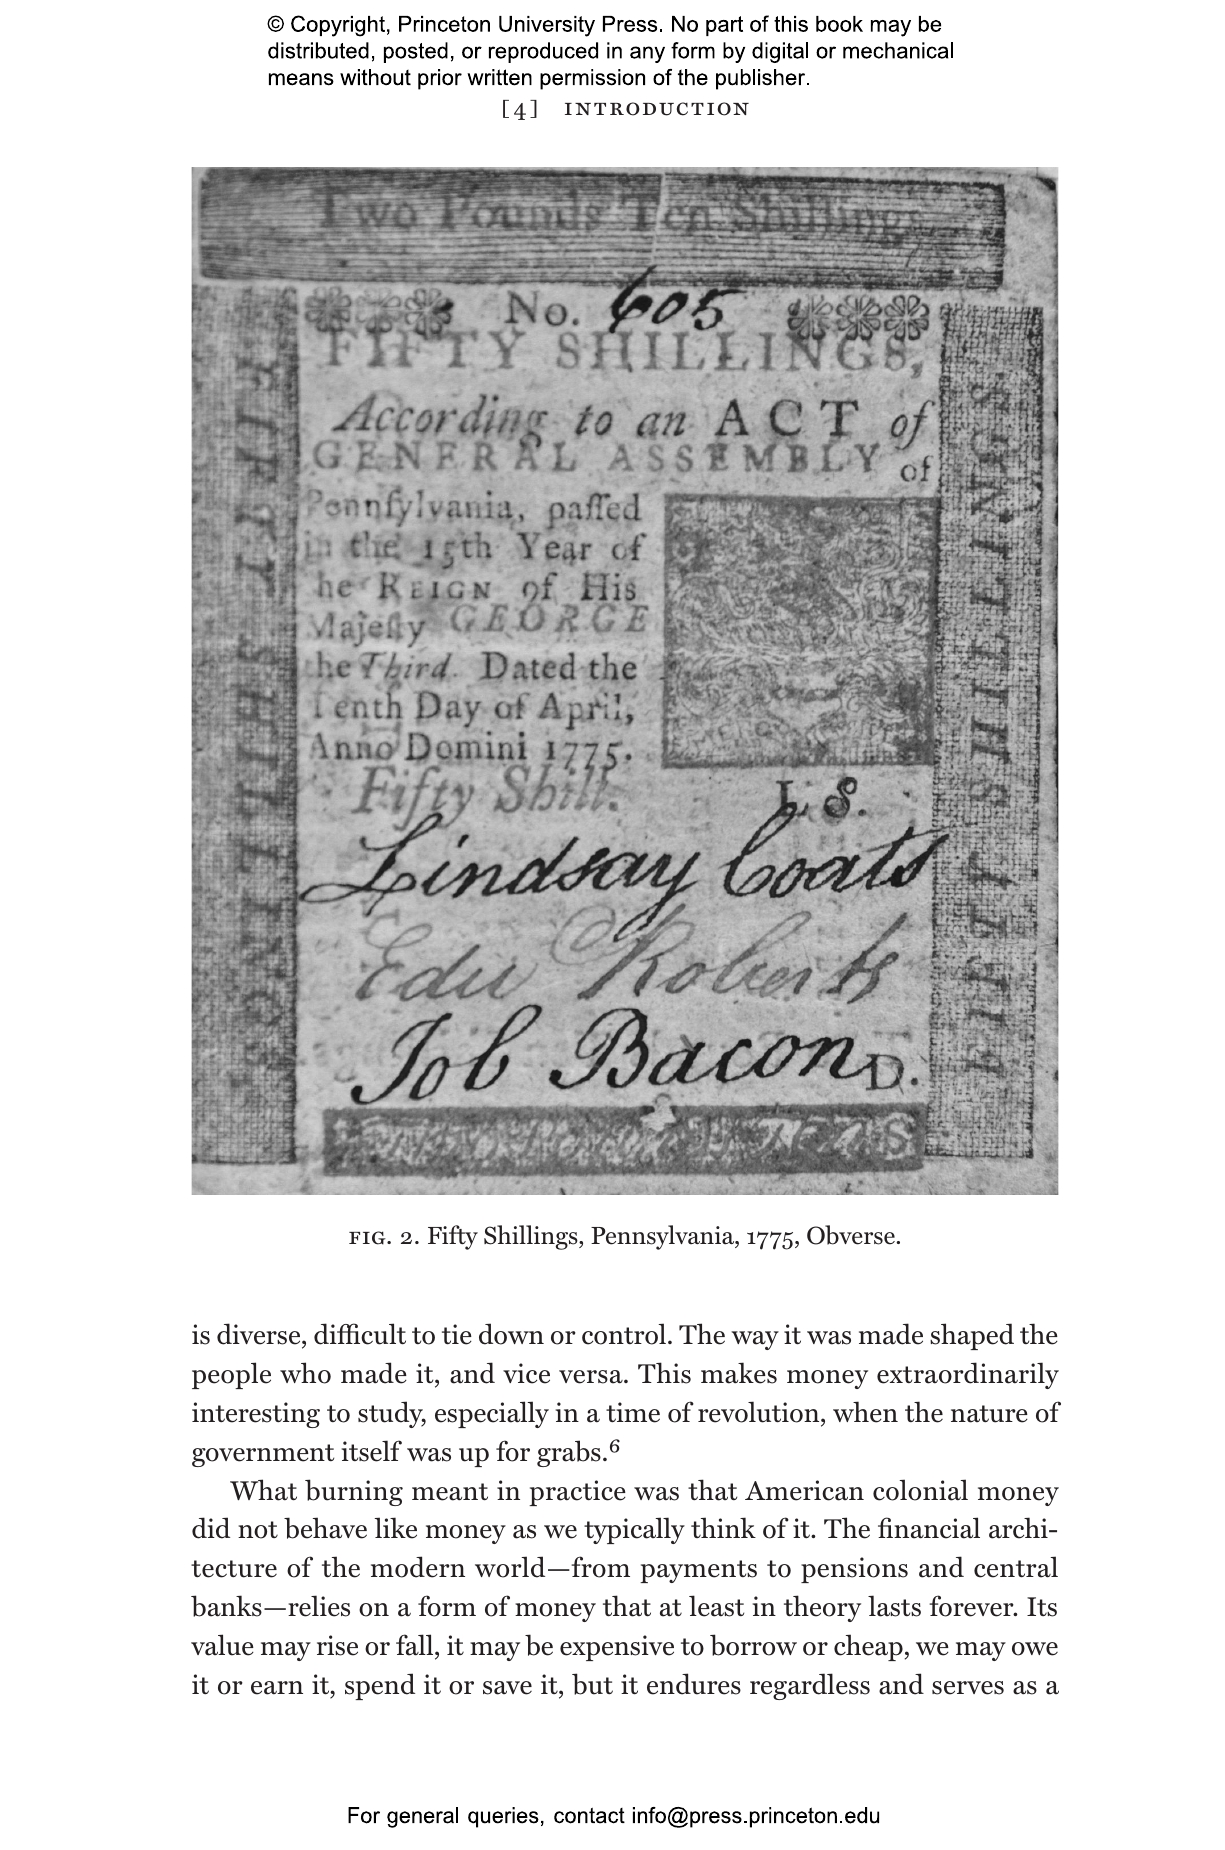 © Copyright, Princeton University Press. No part of this book may be
distributed, posted, or reproduced in any form by digital or mechanical
means without prior written permission of the publisher.
[4] INTRODUCTION
Two Pounds Ten Shillings
No. 605
FIFTY SHILLINGS,
According to an ACT of
GENERAL ASSEMBLY of
Pennſylvania, paſſed
in the 15th Year of
he REIGN of His
Majeſty GEORGE
he Third. Dated the
Tenth Day of April,
Anno Domini 1775.
Fifty Shill.
L S.
Lindsay Coats
Edw Roberts
Job Bacon D.
FIFTY SHILLINGS
FIFTY SHILLINGS.
FIG. 2. Fifty Shillings, Pennsylvania, 1775, Obverse.
is diverse, difficult to tie down or control. The way it was made shaped the
people who made it, and vice versa. This makes money extraordinarily
interesting to study, especially in a time of revolution, when the nature of
government itself was up for grabs.⁶
What burning meant in practice was that American colonial money
did not behave like money as we typically think of it. The financial archi-
tecture of the modern world—from payments to pensions and central
banks—relies on a form of money that at least in theory lasts forever. Its
value may rise or fall, it may be expensive to borrow or cheap, we may owe
it or earn it, spend it or save it, but it endures regardless and serves as a
For general queries, contact info@press.princeton.edu